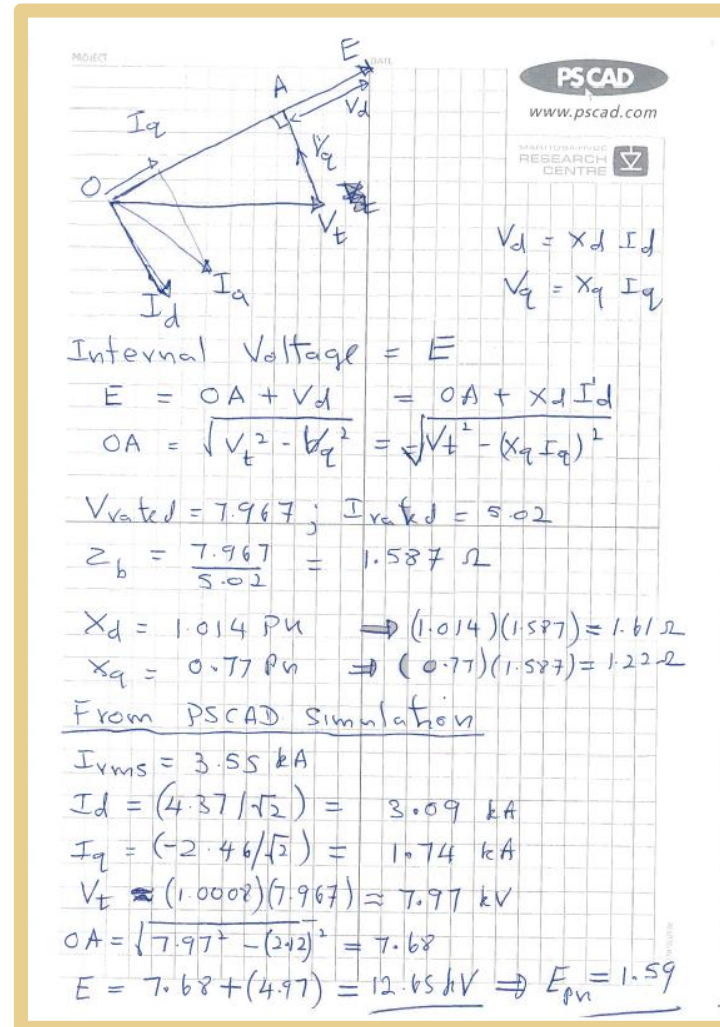 PROJECT
DATE
E
PSCAD
www.pscad.com
A
Vd
Iq
MANITOBA HVDC
RESEARCH
CENTRE
Vq
O
Vt
Vd = Xd Id
Ia
Vq = Xq Iq
Id
Internal Voltage = E
E = OA + Vd = OA + Xd Id
OA = √(Vt² - Vq²) = √(Vt² - (Xq Iq)²)
Vrated = 7.967 ; Irated = 5.02
Zb = 7.967 / 5.02 = 1.587 Ω
Xd = 1.014 Pu ⇒ (1.014)(1.587) = 1.61 Ω
Xq = 0.77 Pu ⇒ (0.77)(1.587) = 1.22 Ω
From PSCAD simulation
Irms = 3.55 kA
Id = (4.37/√2) = 3.09 kA
Iq = (-2.46/√2) = 1.74 kA
Vt ≈ (1.0008)(7.967) ≈ 7.97 kV
OA = √(7.97² - (2.12)²) = 7.68
E = 7.68 + (4.97) = 12.65 kV ⇒ Epu = 1.59